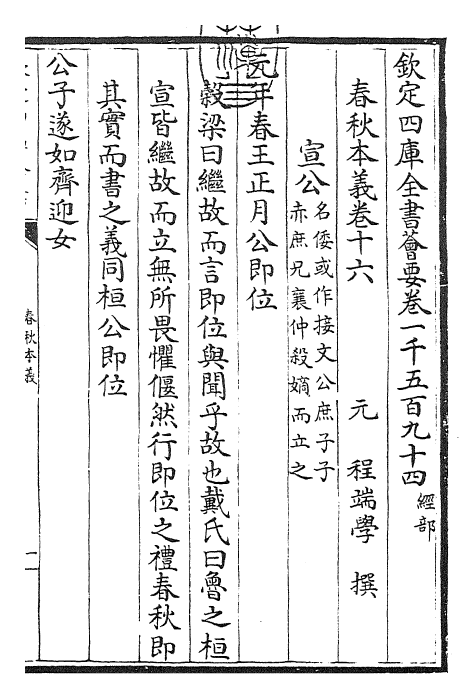 欽定四庫全書薈要卷一千五百九十四經部
春秋本義卷十六
元 程端學 撰
宣公名倭或作接文公庶子子
赤庶兄襄仲殺嫡而立之
元年春王正月公即位
穀梁曰繼故而言即位與聞乎故也戴氏曰魯之桓
宣皆繼故而立無所畏懼偃然行即位之禮春秋即
其實而書之義同桓公即位
公子遂如齊迎女
春秋本義
一